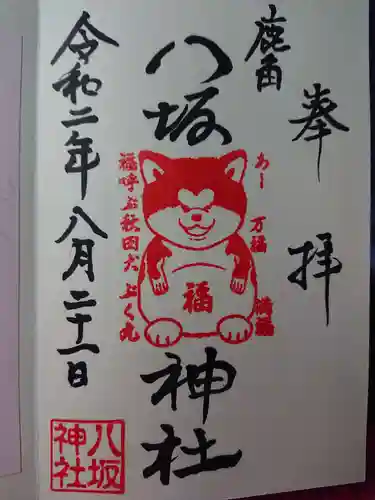 奉拝
鹿角
八坂神社
あー
万福
満福
福
福呼ぶ秋田犬ふく丸
令和二年八月二十一日
八坂神社